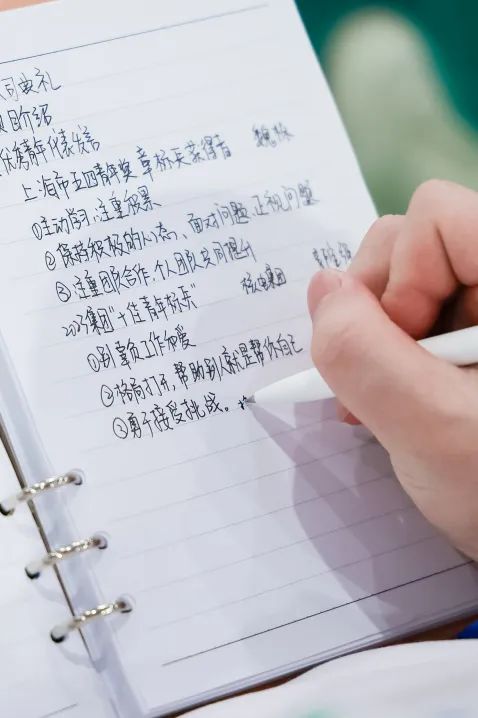 司典礼
目介绍
优秀青年代表发言
上海市五四青年奖章标兵获得者
①主动学习,注重积累
②保持积极的心态、面对问题、正视问题
③注重团队合作,个人团队共同提升
2023集团"十佳青年标兵" 核电集团
①别辜负工作热爱
②格局打开,帮助别人就是帮你自己
③勇于接受挑战。